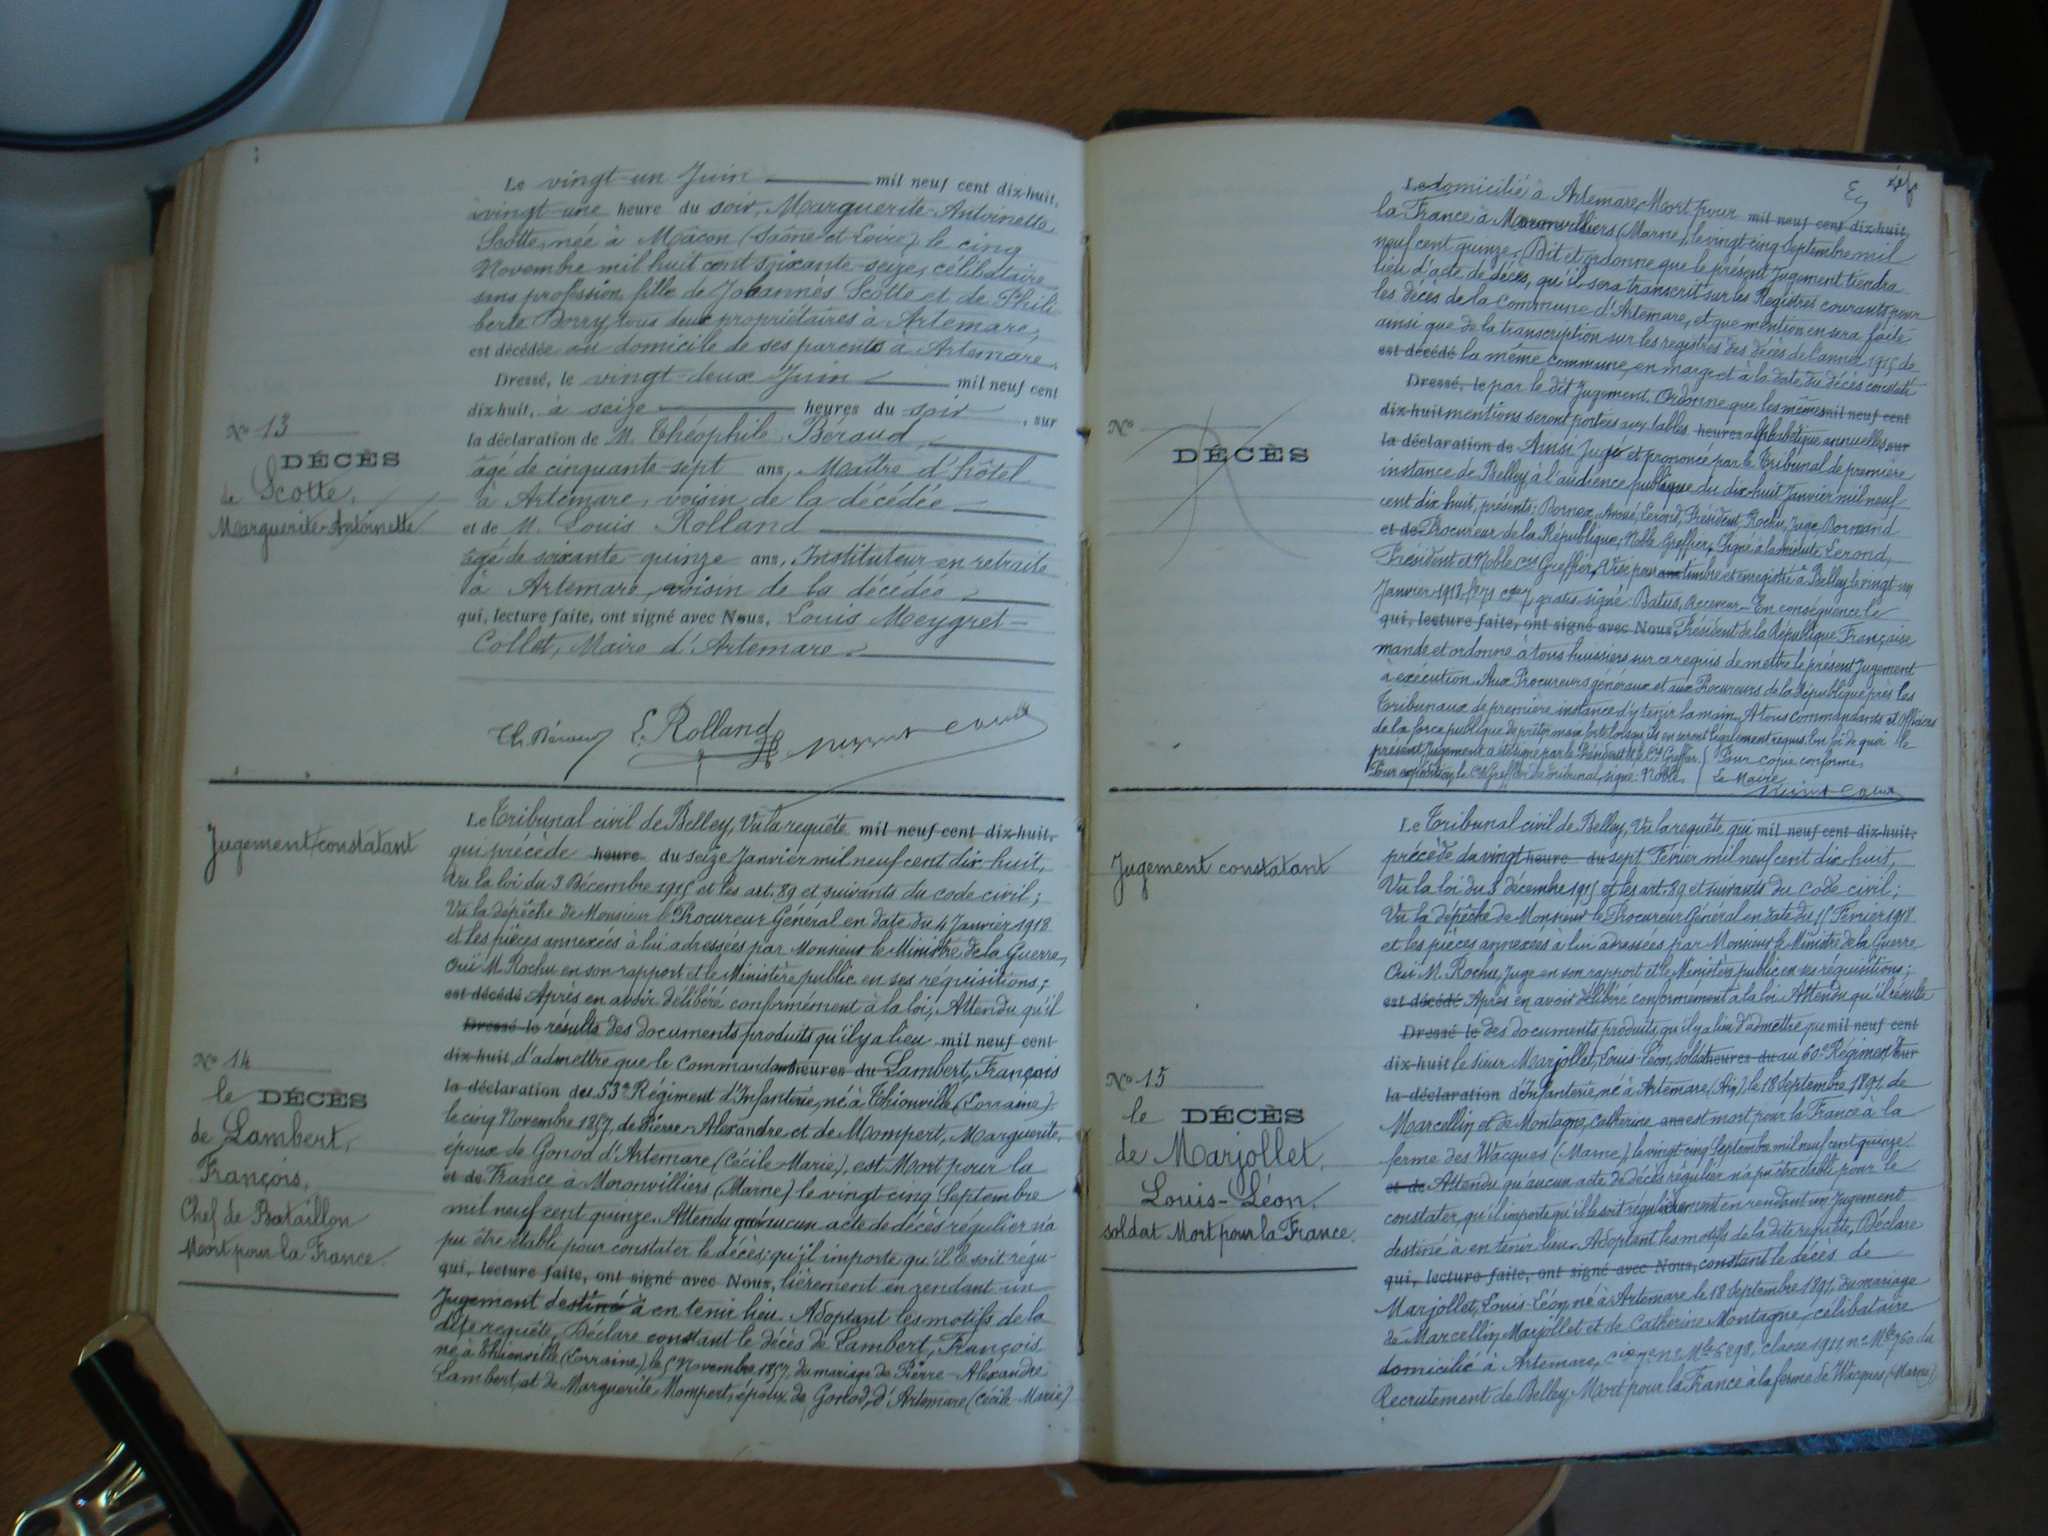 Le vingt-un Juin mil neuf cent dix-huit,
à vingt-une heure du soir, Marguerite-Antoinette
Scotte, née à Mâcon (Saône-et-Loire), le cinq
Novembre mil huit cent soixante-seize, célibataire
sans profession, fille de Johannès Scotte et de Phili
berte Borry tous deux propriétaires à Artemare,
est décédée au domicile de ses parents à Artemare.
Dressé, le vingt-deux Juin mil neuf cent
dix-huit, à seize heures du soir, sur
la déclaration de M. Théophile Béraud,
âgé de cinquante-sept ans, Maître d'hôtel
à Artemare, voisin de la décédée
et de M. Louis Rolland
âgé de soixante-quinze ans, Instituteur en retraite
à Artemare, voisin de la décédée
qui, lecture faite, ont signé avec Nous, Louis Meygret-
Collet, Maire d'Artemare.
Th. Béraud L. Rolland
N° 13
DÉCÈS
de Scotte,
Marguerite-Antoinette
Jugement constatant
N° 14
le DÉCÈS
de Lambert,
François,
Chef de Bataillon
Mort pour la France.
Le Tribunal civil de Belley, Vu la requête mil neuf cent dix-huit,
qui précède heure du seize Janvier mil neuf cent dix-huit,
Vu la loi du 3 Décembre 1915 et les art. 89 et suivants du code civil;
Vu la dépêche de Monsieur le Procureur Général en date du 4 Janvier 1918
et les pièces annexées à lui adressées par Monsieur le Ministre de la Guerre,
Ouï M. Rochu en son rapport et le Ministère public en ses réquisitions;
est décédé Après en avoir délibéré conformément à la loi; Attendu qu'il
Dressé le résulte des documents produits qu'il y a lieu mil neuf cent
dix-huit d'admettre que le Commandant heures du Lambert, François
la déclaration de du 53e Régiment d'Infanterie, né à Thionville (Lorraine)
le cinq Novembre 1857, de Pierre-Alexandre et de Mompert, Marguerite,
époux de Gonod d'Artemare (Cécile-Marie), est Mort pour la
et de France à Moronvilliers (Marne) le vingt-cinq Septembre
mil neuf cent quinze. Attendu qu'aucun acte de décès régulier n'a
pu être établi pour constater le décès; qu'il importe qu'il le soit régu-
qui, lecture faite, ont signé avec Nous, lièrement en rendant un
Jugement destiné à en tenir lieu. Adoptant les motifs de la
dite requête, Déclare constant le décès de Lambert, François
né à Thionville (Lorraine), le 5 Novembre 1857, du mariage de Pierre-Alexandre
Lambert, et de Marguerite Mompert, époux de Gonod, d'Artemare (Cécile-Marie)
Le domicilié à Artemare, Mort pour mil neuf cent dix-huit,
la France à Moronvilliers (Marne), le vingt-cinq Septembre mil
neuf cent quinze. Dit et ordonne que le présent Jugement tiendra
lieu d'acte de décès, qu'il sera transcrit sur les Registres courants pour
les décès de la Commune d'Artemare, et que mention en sera faite
ainsi que de la transcription sur les registres des décès de l'année 1915 de
est décédé la même commune, en marge et à la date du décès constaté
Dressé, le par le dit Jugement. Ordonne que les mêmes mil neuf cent
dix-huit mentions seront portées aux tables heures alphabétiques annuelles sur
la déclaration de Ainsi Jugé et prononcé par le Tribunal de première
instance de Belley à l'audience publique du dix-huit Janvier mil neuf
cent dix huit, présents: Lerond, Président, Rochu, Juge, Bornand
et de Procureur de la République; Noble Greffier. Signé à la minute, Lerond,
Président et Noble Cis Greffier, Visé pour timbre et enregistré à Belley le vingt-un
Janvier 1918 gratis signé: Receveur. En conséquence le
qui, lecture faite, ont signé avec Nous, Président de la République Française
mande et ordonne à tous huissiers sur ce requis de mettre le présent Jugement
à exécution. Aux Procureurs généraux et aux Procureurs de la République près les
Tribunaux de première instance d'y tenir la main. A tous Commandants et Officiers
de la force publique de prêter main forte lorsqu'ils en seront légalement requis. En foi de quoi le
présent Jugement a été signé par le Président et le Cis Greffier. Pour copie conforme,
Pour expédition, le Cis Greffier du Tribunal, signé: Noble. Le Maire
N°
DÉCÈS
Jugement constatant
N° 15
le DÉCÈS
de Marjollet,
Louis-Léon,
soldat Mort pour la France.
Le Tribunal civil de Belley, Vu la requête qui mil neuf cent dix-huit,
précède du vingt heure du sept Février mil neuf cent dix-huit,
Vu la loi du 3 décembre 1915 et les art. 89 et suivants du code civil;
Vu la dépêche de Monsieur le Procureur Général en date du 15 Février 1918
et les pièces annexées à lui adressées par Monsieur le Ministre de la Guerre
Ouï M. Rochu, Juge en son rapport et le Ministère public en ses réquisitions;
est décédé Après en avoir délibéré conformément à la loi. Attendu qu'il résulte
Dressé le des documents produits qu'il y a lieu d'admettre que mil neuf cent
dix-huit le sieur Marjollet, Louis-Léon, soldat heures du au 60e Régiment sur
la déclaration d'Infanterie, né à Artemare (Ain), le 18 Septembre 1891, de
Marcellin et de Montagne, Catherine ans est mort pour la France à la
ferme des Wacques (Marne) le vingt-cinq Septembre mil neuf cent quinze.
et de Attendu qu'aucun acte de décès régulier n'a pu être établi pour le
constater, qu'il importe qu'il le soit régulièrement en rendant un Jugement
destiné à en tenir lieu. Adoptant les motifs de la dite requête, Déclare
qui, lecture faite, ont signé avec Nous, constant le décès de
Marjollet, Louis-Léon, né à Artemare le 18 Septembre 1891, du mariage
de Marcellin Marjollet et de Catherine Montagne, célibataire
domicilié à Artemare, n° Mle 5298, classe 1911, n° Mle 760 du
Recrutement de Belley, Mort pour la France à la ferme de Wacques (Marne)